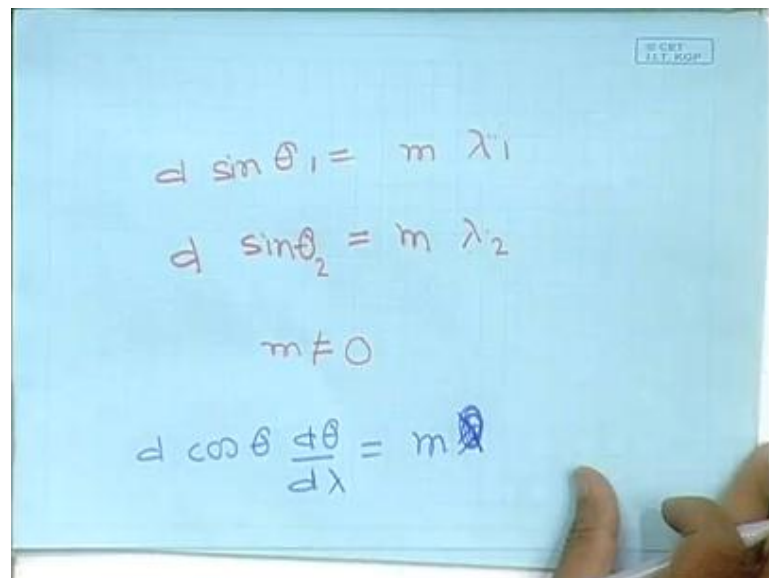 © CET
I.I.T. KGP
d sin θ₁ = m λ₁
d sinθ₂ = m λ₂
m ≠ 0
d cos θ dθ/dλ = m